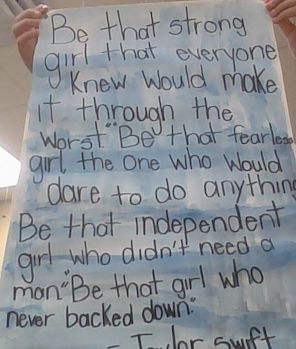 Be that strong
girl that everyone
Knew would make
it through the
worst" Be that fearless
girl, the one who would
dare to do anything
Be that independent
girl who didn't need a
man." Be that girl who
never backed down."
- Taylor Swift